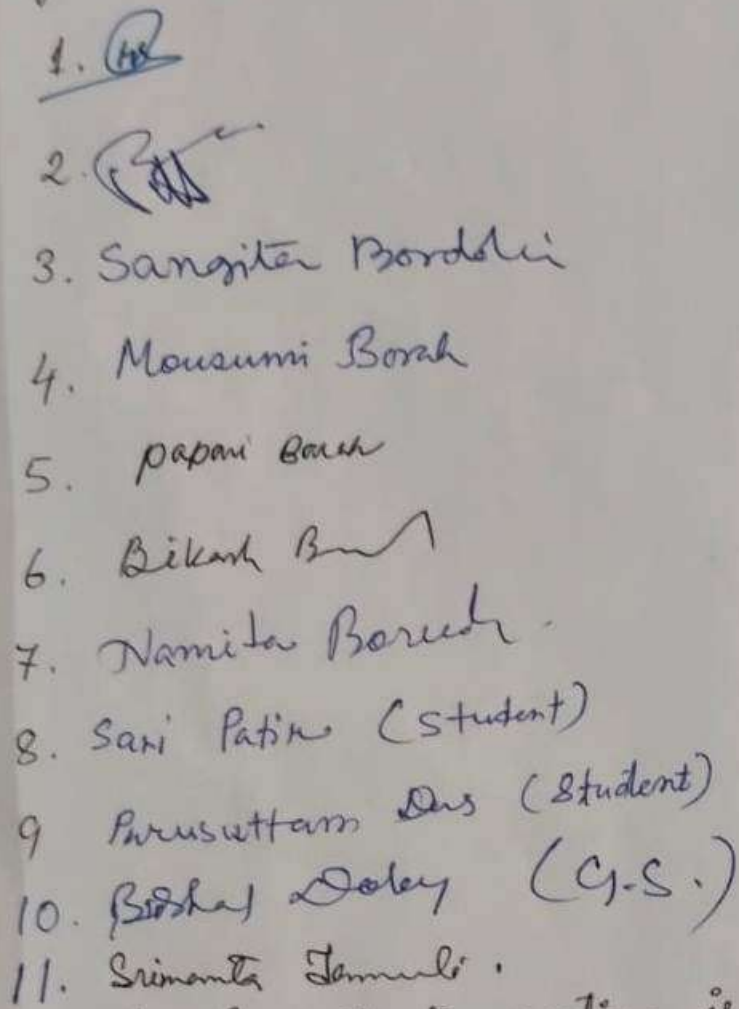 1.
2.
3. Sangita Bordoloi
4. Mousumi Borah
5. papari Borah
6. Bikash
7. Namita Boruah.
8. Sari Patir (Student)
9 Purusuttam Das (Student)
10. Bishal Doley (G.S.)
11. Srimanta Jammuli.